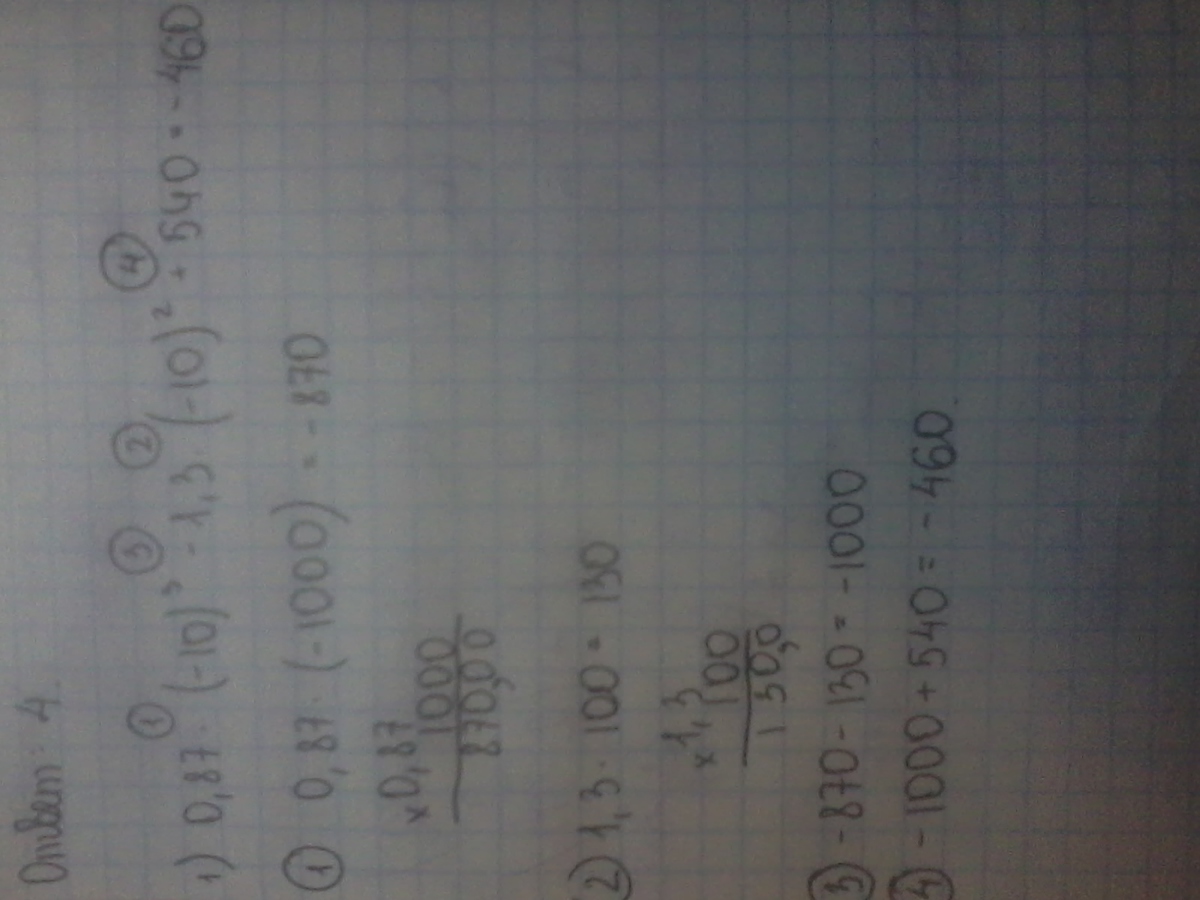 Ответ: 4.
① ③ ② ④
1) 0,87 · (-10)³ - 1,3 · (-10)² + 540 = - 460
① 0,87 · (-1000) = - 870
× 0,87
1000
870,00
② 1,3 · 100 = 130
× 1,3
100
130,0
③ - 870 - 130 = - 1000
④ - 1000 + 540 = - 460.